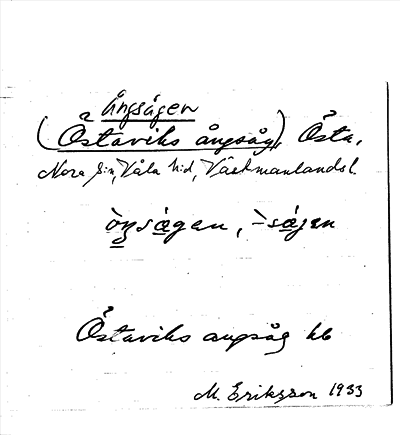 Ångsågen
(Östaviks ångsåg), Östa,
Nora sn, Våla hd, Västmanlands l.
ò̱ŋsa̱gen, -̀sa̱gen
Östaviks angsåg kb
M. Eriksson 1933